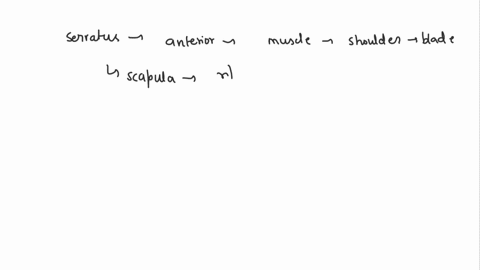 serratus → anterior → muscle → shoulder → blade
↳ scapula →